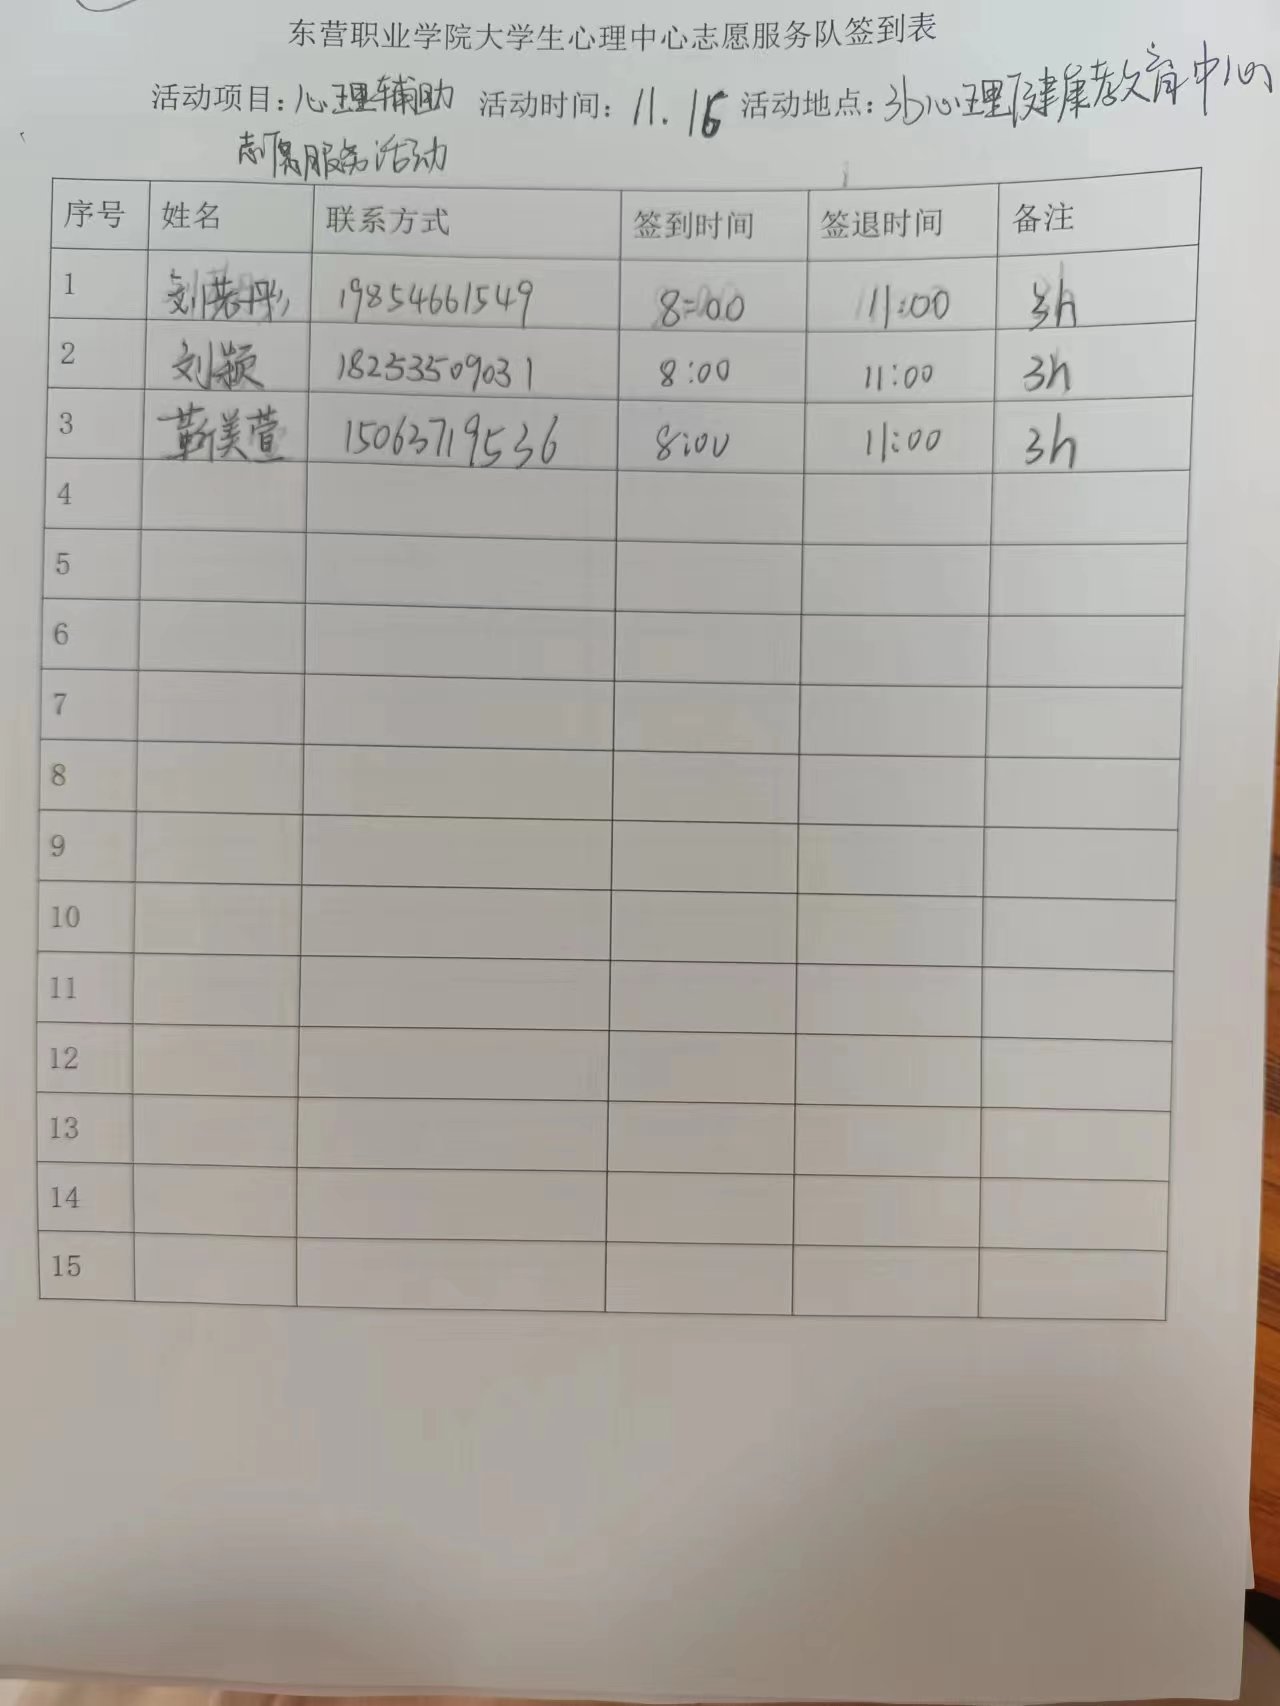 东营职业学院大学生心理中心志愿服务队签到表
活动项目：心理辅助 活动时间：11.16 活动地点：3b心理健康教育中心
志愿服务活动
序号 姓名 联系方式 签到时间 签退时间 备注
1 刘 19854661549 8:00 11:00 3h
2 刘颖 18253509031 8:00 11:00 3h
3 靳美萱 15063719536 8:00 11:00 3h
4
5
6
7
8
9
10
11
12
13
14
15